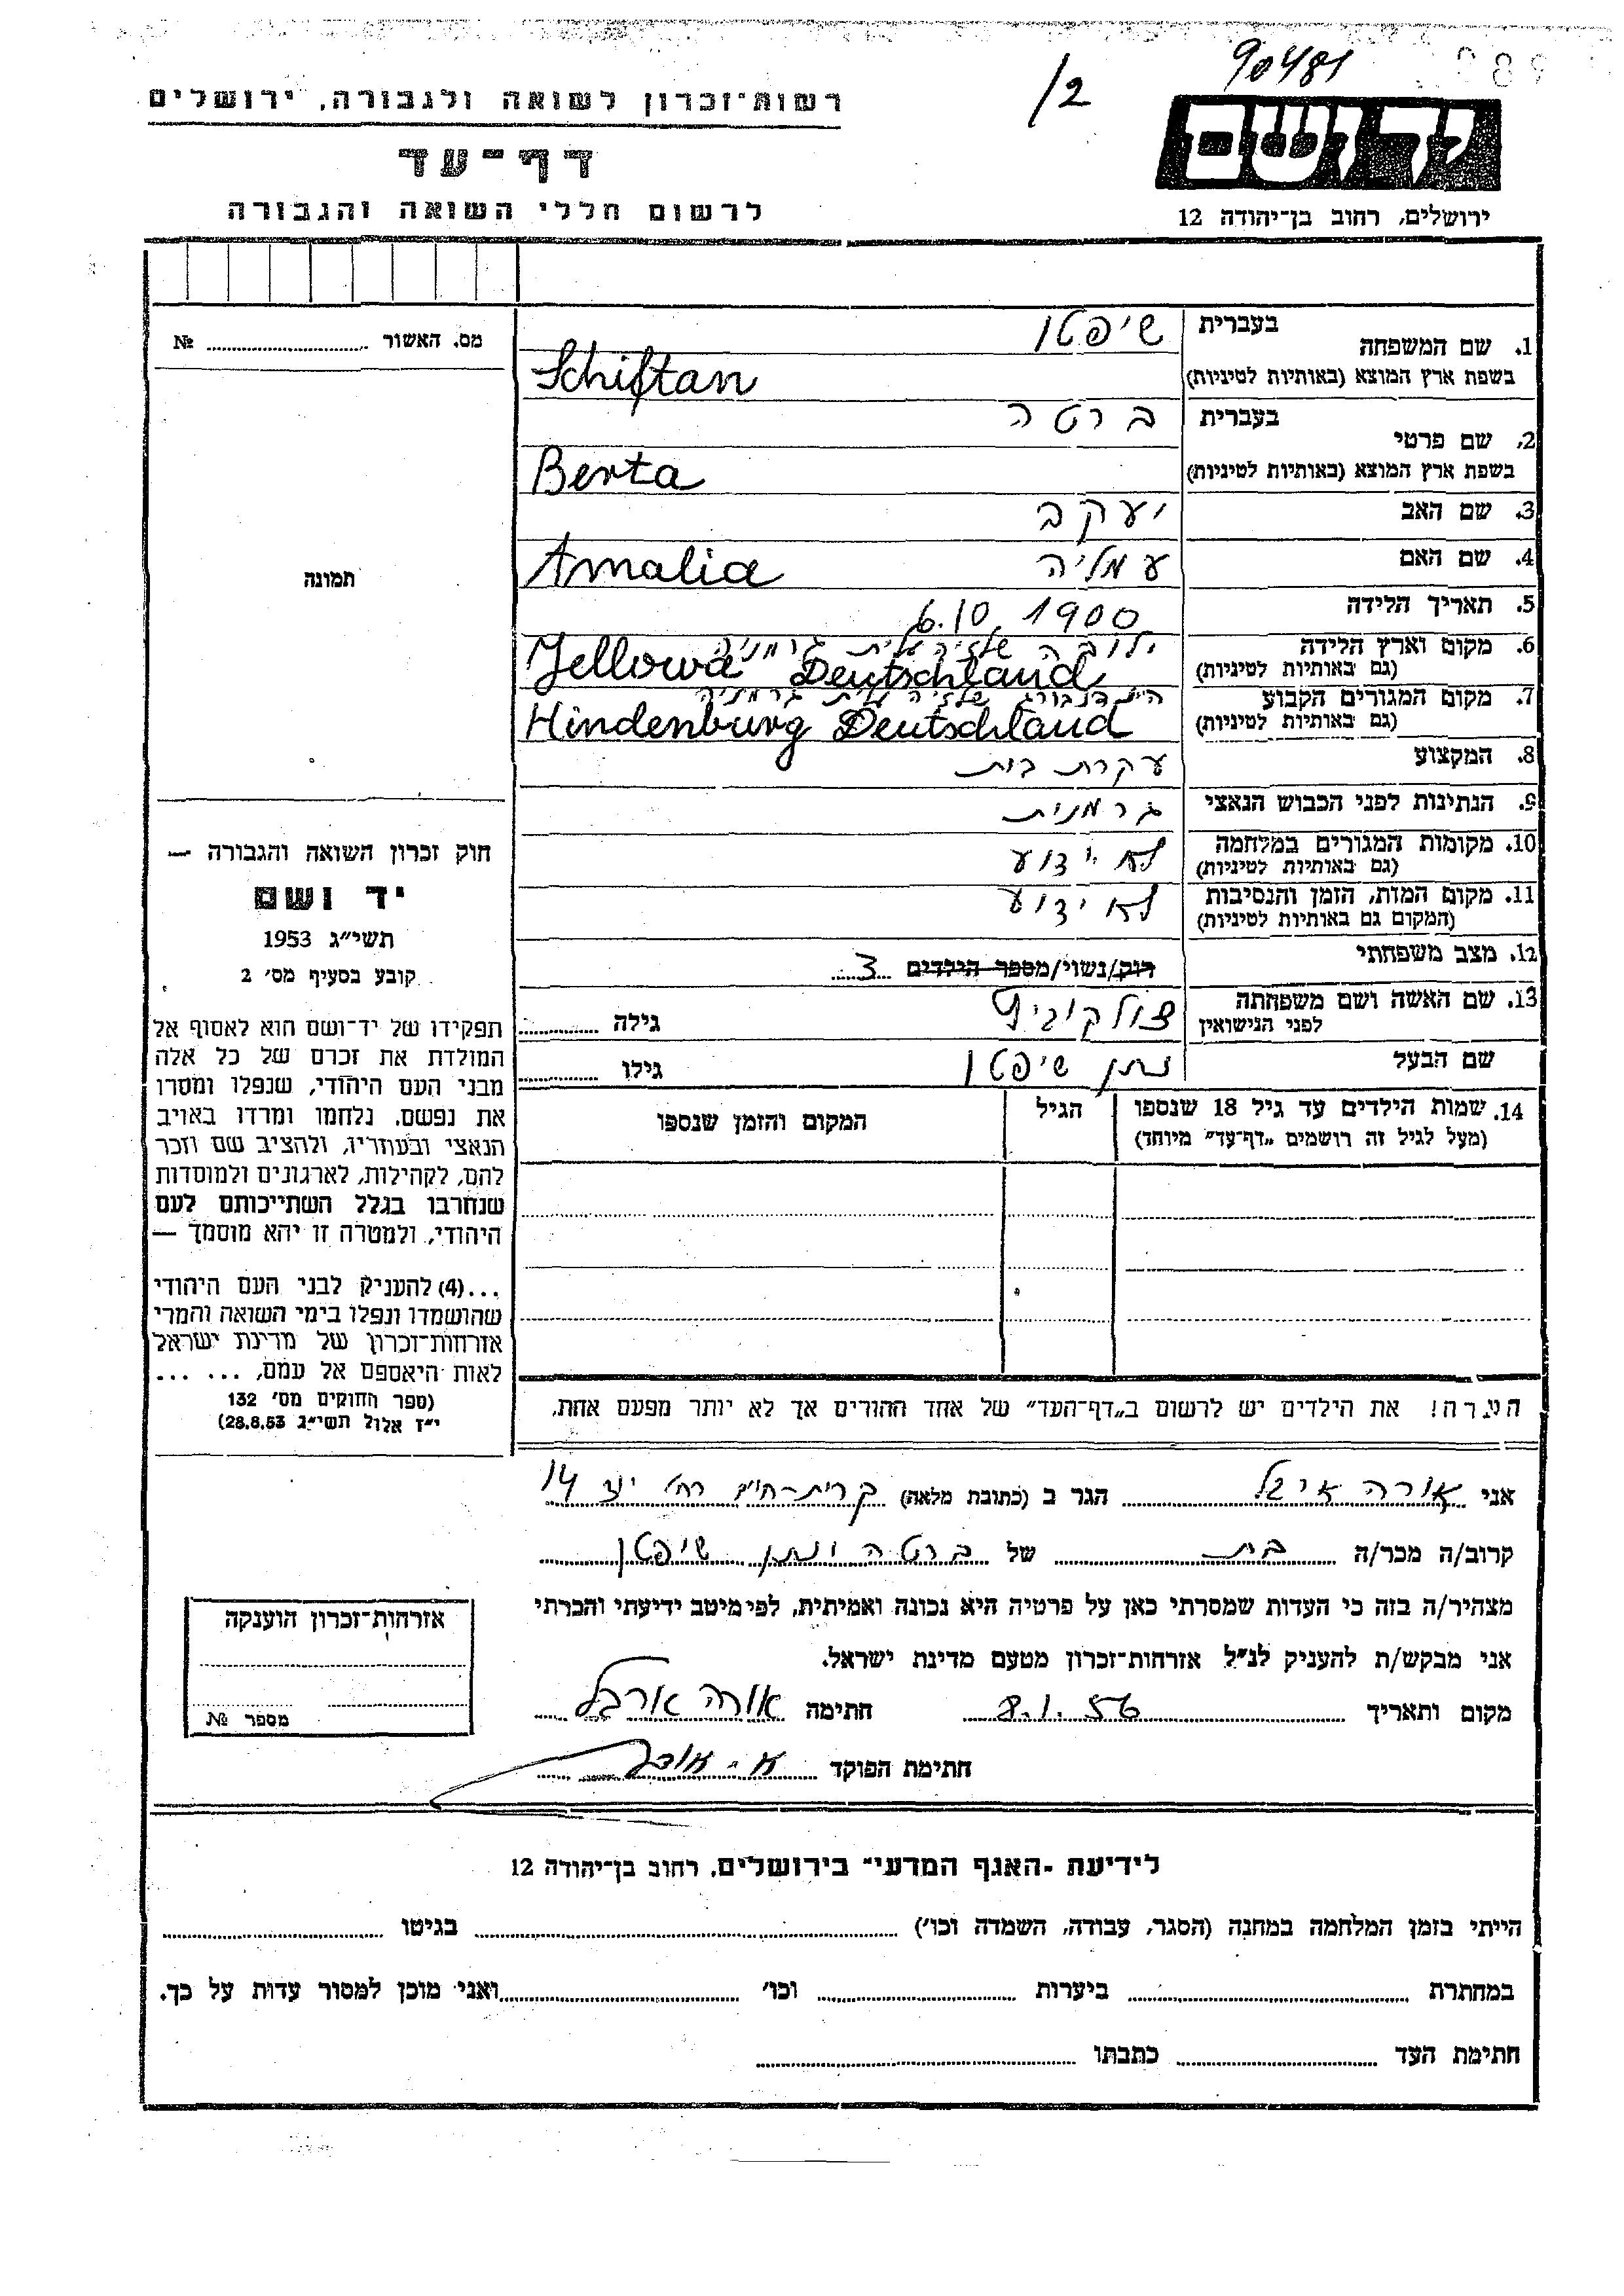 90481
/2
יד ושם
ירושלים, רחוב בן־יהודה 12
רשות־זכרון לשואה ולגבורה, ירושלים
דף־עד
לרשום חללי השואה והגבורה
מס. האשור № 
1. שם המשפחה בעברית שיפטן
בשפת ארץ המוצא (באותיות לטיניות) Schiftan
2. שם פרטי בעברית ברטה
בשפת ארץ המוצא (באותיות לטיניות) Berta
3. שם האב יעקב
4. שם האם עמליה Amalia
5. תאריך הלידה 6.10.1900
6. מקום וארץ הלידה ילובה שלזיה עלית גרמניה
(גם באותיות לטיניות) Jellowa Deutschland
7. מקום המגורים הקבוע הינדנבורג שלזיה עלית גרמניה
(גם באותיות לטיניות) Hindenburg Deutschland
8. המקצוע עקרת בית
9. הנתינות לפני הכבוש הנאצי גרמנית
10. מקומות המגורים במלחמה לא ידוע
(גם באותיות לטיניות)
11. מקום המות, הזמן והנסיבות לא ידוע
(המקום גם באותיות לטיניות)
12. מצב משפחתי רוק/נשוי/מספר הילדים 3
13. שם האשה ושם משפחתה
לפני הנישואין גילה
שם הבעל נתן שיפטן גילו
14. שמות הילדים עד גיל 18 שנספו הגיל המקום והזמן שנספו
(מעל לגיל זה רושמים "דף־עד" מיוחד)
הערה! את הילדים יש לרשום ב"דף־העד" של אחד ההורים אך לא יותר מפעם אחת.
תמונה
חוק זכרון השואה והגבורה —
יד ושם
תשי"ג 1953
קובע בסעיף מס' 2
תפקידו של יד־ושם הוא לאסוף אל
המולדת את זכרם של כל אלה
מבני העם היהודי, שנפלו ומסרו
את נפשם, נלחמו ומרדו באויב
הנאצי ובעוזריו, ולהציב שם וזכר
להם, לקהילות, לארגונים ולמוסדות
שנחרבו בגלל השתייכותם לעם
היהודי, ולמטרה זו יהא מוסמך —
...(4) להעניק לבני העם היהודי
שהושמדו ונפלו בימי השואה והמרי
אזרחות־זכרון של מדינת ישראל
לאות היאספם אל עמם, ... ...
(ספר החוקים מס' 132
י"ז אלול תשי"ג 28.8.53)
אני אורה הגר ב (כתובת מלאה) קרית־חיים רח' 14
קרוב/ה מכר/ה בת של ברטה ונתן שיפטן
מצהיר/ה בזה כי העדות שמסרתי כאן על פרטיה היא נכונה ואמיתית, לפי מיטב ידיעתי והכרתי
אני מבקש/ת להעניק לנ"ל אזרחות־זכרון מטעם מדינת ישראל.
מקום ותאריך 8.1.56 חתימה אורה
חתימת הפוקד
אזרחות־זכרון הוענקה
מספר №
לידיעת "האגף המדעי" בירושלים, רחוב בן־יהודה 12
הייתי בזמן המלחמה במחנה (הסגר, עבודה, השמדה וכו') בגיטו
במחתרת ביערות וכו' ואני מוכן למסור עדות על כך.
חתימת העד כתבתו